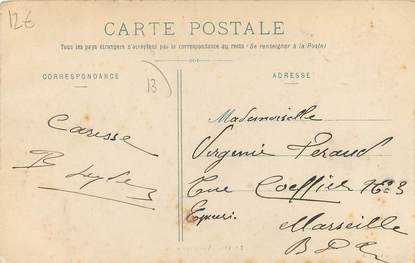 12€
CARTE POSTALE
Tous les pays étrangers n'acceptent pas la correspondance au recto (Se renseigner à la Poste)
CORRESPONDANCE
13
ADRESSE
Caresse
Mademoiselle
Virginie Peraud
Rue Coeffier N° 3
Marseille
B D R